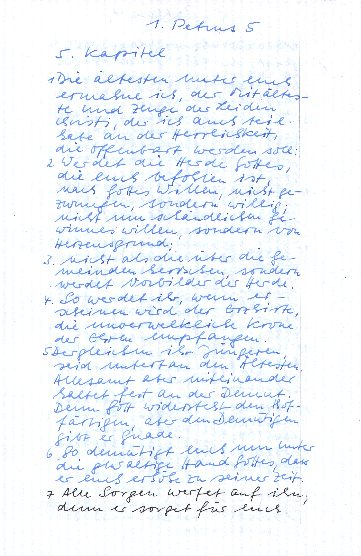 1. Petrus 5
5. Kapitel
1 Die ältesten unter euch
ermahne ich, der Mitältes-
te und Zeuge der Leiden
Christi, der ich auch teil
habe an der Herrlichkeit,
die offenbart werden soll:
2 Weidet die Herde Gottes,
die euch befohlen ist,
nach Gottes Willen, nicht ge-
zwungen, sondern willig;
nicht um schändlichen Ge-
winnes willen, sondern von
Herzensgrund;
3. nicht als die über die Ge-
meinden herrschen, sondern
werdet Vorbilder der Herde.
4. So werdet ihr, wenn er-
scheinen wird der Erzhirte,
die unverwelkliche Krone
der Ehren empfangen.
5 Desgleichen ihr Jüngeren
seid untertan den Ältesten.
Allesamt aber miteinander
haltet fest an der Demut.
Denn Gott widersteht den Hof-
färtigen, aber den Demütigen
gibt er Gnade.
6 So demütigt euch nun unter
die gewaltige Hand Gottes, dass
er euch erhöhe zu seiner Zeit.
7 Alle Sorgen werfet auf ihn;
denn er sorget für euch